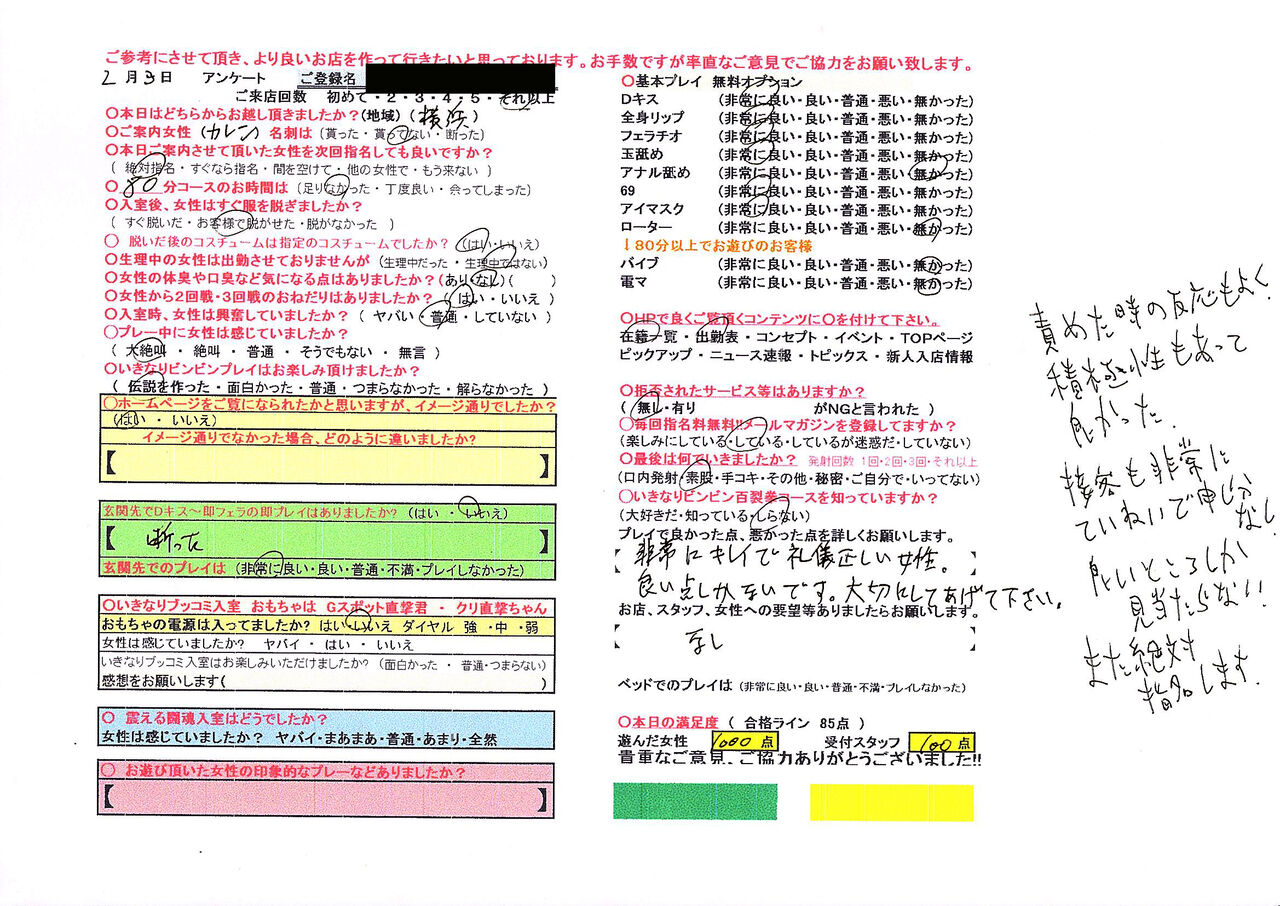 ご参考にさせて頂き、より良いお店を作って行きたいと思っております。お手数ですが率直なご意見でご協力をお願い致します。
2月3日 アンケート ご登録名
ご来店回数 初めて・2・3・4・5・それ以上
〇本日はどちらからお越し頂きましたか?(地域) (横浜)
〇ご案内女性 (カレン) 名刺は (貰った・貰ってない・断った)
〇本日ご案内させて頂いた女性を次回指名しても良いですか?
( 絶対指名・すぐなら指名・間を空けて・他の女性で・もう来ない )
〇 80 分コースのお時間は (足りなかった・丁度良い・余ってしまった)
〇入室後、女性はすぐ服を脱ぎましたか?
( すぐ脱いだ・お客様で脱がせた・脱がなかった )
〇 脱いだ後のコスチュームは指定のコスチュームでしたか? (はい・いいえ)
〇生理中の女性は出勤させておりませんが (生理中だった・生理中ではない)
〇女性の体臭や口臭など気になる点はありましたか?(あり・なし)( )
〇女性から2回戦・3回戦のおねだりはありましたか? ( はい・いいえ )
〇入室時、女性は興奮していましたか? ( ヤバい・普通・していない )
〇プレー中に女性は感じていましたか?
( 大絶叫 ・ 絶叫 ・ 普通 ・ そうでもない ・ 無言 )
〇いきなりビンビンプレイはお楽しみ頂けましたか?
( 伝説を作った・面白かった・普通・つまらなかった・解らなかった )
〇ホームページをご覧になられたかと思いますが、イメージ通りでしたか?
(はい ・ いいえ)
イメージ通りでなかった場合、どのように違いましたか?
【 】
玄関先でDキス～即フェラの即プレイはありましたか? (はい ・ いいえ)
【 断った 】
玄関先でのプレイは (非常に良い・良い・普通・不満・プレイしなかった)
〇いきなりブッコミ入室 おもちゃは Gスポット直撃君 ・ クリ直撃ちゃん
おもちゃの電源は入ってましたか? はい・いいえ ダイヤル 強 ・中 ・弱
女性は感じていましたか? ヤバイ ・ はい ・ いいえ
いきなりブッコミ入室はお楽しみいただけましたか? (面白かった ・ 普通・つまらない)
感想をお願いします( )
〇 震える闘魂入室はどうでしたか?
女性は感じていましたか? ヤバイ・まあまあ・普通・あまり・全然
〇 お遊び頂いた女性の印象的なプレーなどありましたか?
【 】
〇基本プレイ 無料オプション
Dキス (非常に良い・良い・普通・悪い・無かった)
全身リップ (非常に良い・良い・普通・悪い・無かった)
フェラチオ (非常に良い・良い・普通・悪い・無かった)
玉舐め (非常に良い・良い・普通・悪い・無かった)
アナル舐め (非常に良い・良い・普通・悪い・無かった)
69 (非常に良い・良い・普通・悪い・無かった)
アイマスク (非常に良い・良い・普通・悪い・無かった)
ローター (非常に良い・良い・普通・悪い・無かった)
↓80分以上でお遊びのお客様
バイブ (非常に良い・良い・普通・悪い・無かった)
電マ (非常に良い・良い・普通・悪い・無かった)
〇HPで良くご覧頂くコンテンツに〇を付けて下さい。
在籍一覧 ・ 出勤表 ・ コンセプト ・ イベント ・ TOPページ
ピックアップ ・ ニュース速報 ・ トピックス ・ 新人入店情報
〇拒否されたサービス等はありますか?
( 無し・有り がNGと言われた )
〇毎回指名料無料!!メールマガジンを登録してますか?
(楽しみにしている・している・しているが迷惑だ・していない)
〇最後は何でいきましたか? 発射回数 1回・2回・3回・それ以上
(口内発射・素股・手コキ・その他・秘密・ご自分で・いってない)
〇いきなりビンビン百裂拳コースを知っていますか?
(大好きだ・知っている・しらない)
プレイで良かった点、悪かった点を詳しくお願いします。
非常にキレイで礼儀正しい女性。
良い点しかないです。大切にしてあげて下さい。
お店、スタッフ、女性への要望等ありましたらお願いします。
なし
ベッドでのプレイは (非常に良い・良い・普通・不満・プレイしなかった)
〇本日の満足度 ( 合格ライン 85点 )
遊んだ女性 1000 点 受付スタッフ 100 点
貴重なご意見、ご協力ありがとうございました!!
責めた時の反応もよく、
積極性もあって
良かった。
接客も非常に
ていねいで申し分
なし
良いところしか
見当たらない!
また絶対
指名します